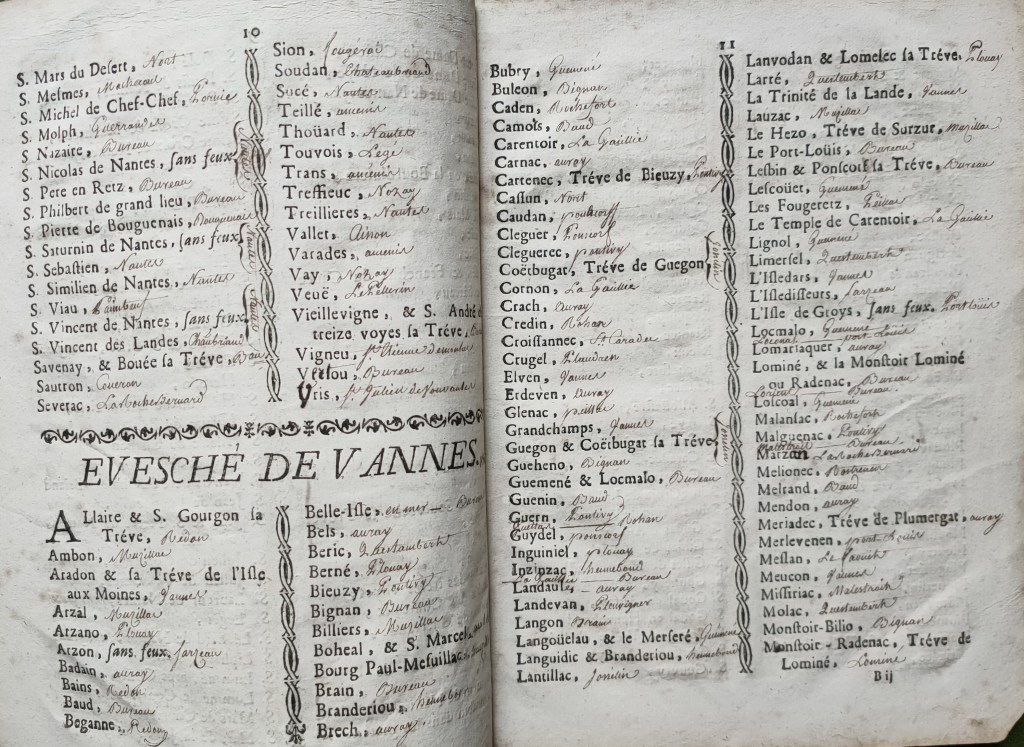 10
S. Mars du Desert, Nort
S. Mesmes, Machecoul
S. Michel de Chef-Chef, Pornic
S. Molph, Guerrande
S. Nazaire, Bureau
S. Nicolas de Nantes, sans feux Nantes
S. Pere en Retz, Bureau
S. Philbert de grand lieu, Bureau
S. Pierre de Bouguenais, Bouguenais
S. Saturnin de Nantes, sans feux Nantes
S. Sebastien, Nantes
S. Similien de Nantes, Nantes
S. Viau, Paimbeuf
S. Vincent de Nantes, sans feux Nantes
S. Vincent des Landes, Chaubriand
Savenay, & Bouée sa Tréve,
Sautron, Coueron
Severac, La Rochebernard
Sion, fougeraé
Soudan, Chateaubriand
Sucé, Nantes
Teillé, ancenis
Thoüard, Nantes
Touvois, Legé
Trans, ancenis
Treffieuc, Nozay
Treillieres, Nantes
Vallet,
Varades, ancenis
Vay, Nozay
Veuë, Le Pellerin
Vieillevigne, & S. André
treize voyes sa Tréve,
Vigneu, St Etienne de montluc
Vertou, Bureau
Vris, St Julien de Vouvantes
EVESCHÉ DE VANNES.
ALlaire & S. Gourgon sa
Tréve, Redon
Ambon, Muzillac
Aradon & sa Tréve de l'Isle
aux Moines, Vannes
Arzal, Muzillac
Arzano, Plouay
Arzon, sans feux, sarzeau
Badain, auray
Bains, Redon
Baud, Bureau
Beganne, Redon
Belle-Isle, en mer Bureau
Bels, auray
Beric, Questambert
Berné, Plouay
Bieuzy, Pontivy
Bignan, Bureau
Billiers, Muzillac
Boheal, & S. Marcel,
Bourg Paul-Mesuillac,
Brain, Bureau
Branderiou, hennebont
Brech, auray
11
Bubry, Guemené
Buleon, Bignan
Caden, Rochefort
Camols, Baud
Carentoir, La Gasillie
Carnac, auray
Cartenec, Tréve de Bieuzy, Pontivy
Caslun, Nort
Caudan, pontscorf
Cleguer, Ponscorf
Cleguerec, pontivy
Coëtbugat, Tréve de Guegon Jonelin
Cornon, La Gasillie
Crach, auray
Credin, Rohan
Croissannec, St Caradec
Crugel, Plaudren
Elven, Vannes
Erdeven, auray
Glenac, peillac
Grandchamps, Vannes
Guegon & Coëtbugat sa Tréve Jonelin
Gueheno, Bignan
Guemené & Locmalo, Bureau
Guenin, Baud
Guern, Pontivy
Gueltas Rohan
Guydel, ponscorf
Inguiniel, plouay
Inzinzac, hennebond
La Gasillie Bureau
Landaule, auray
Landevan, Pleuvigner
Langon Brain
Langoüelau, & le Merseré, Guemené
Languidic & Branderiou, hennebond
Lantillac, Jonelin
Lanvodan & Lomelec sa Tréve, Plouay
Larré, Questembert
La Trinité de la Lande, Vannes
Lauzac, Muzillac
Le Hezo, Tréve de Surzur, muzillac
Le Port-Loüis, Bureau
Lesbin & Ponscorf sa Tréve, Bureau
Lescoüet, Guemené
Les Fougeretz, Peillac
Le Temple de Carentoir, La Gasillie
Lignol, Guemené
Limersel, Questembert
L'Isledars, Vannes
L'Isledisseurs, sarzeau
L'Isle de Groys, sans feux, Port Louis
Locmalo, Guemené
Locmal, port Louis
Lomariaquer, auray
Lominé, & la Monstoir Lominé
ou Radenac, Bureau
Lorient Bureau
Loscoal, Guemené
Malansac, Rochefort
Malguenac, Pontivy
Malestroit Bureau
Marzan, La Rochebernard
Melionec, Rostrenen
Melrand, Baud
Mendon, auray
Meriadec, Tréve de Plumergat, auray
Merlevenen, port Louis
Meslan, Le faouët
Meucon, Vannes
Missiriac, Malestroit
Molac, Questembert
Monstoir-Bilio, Bignan
Monstoir-Radenac, Tréve de
Lominé, Lominé
Bij